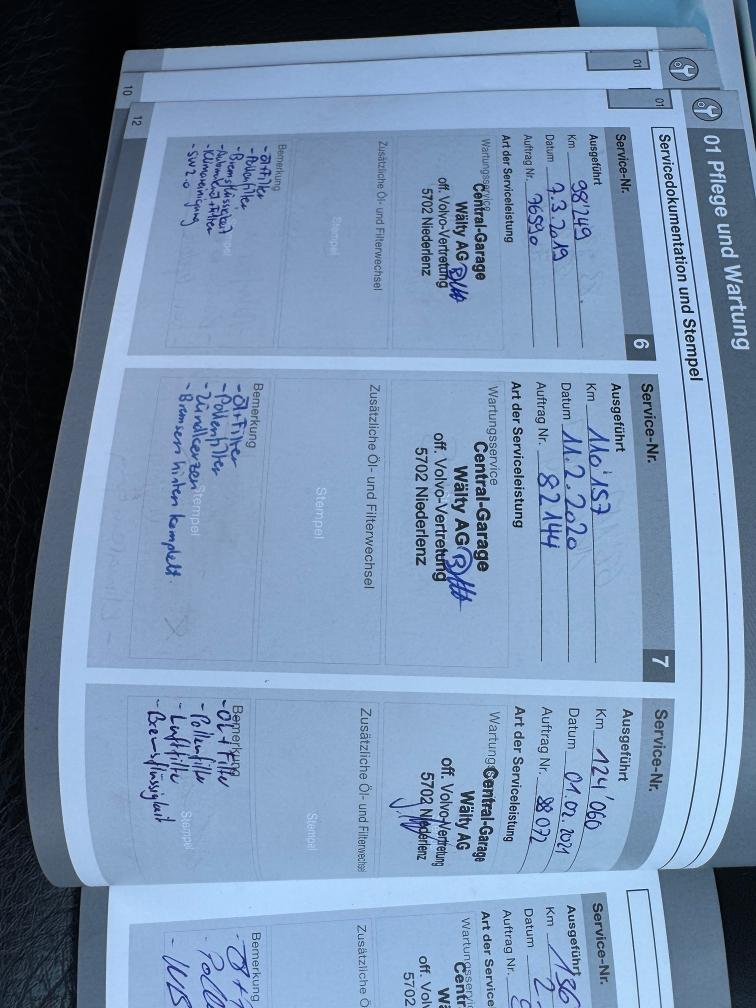 01 Pflege und Wartung
Servicedokumentation und Stempel
01
01
10
12
Service-Nr. 6
Ausgeführt
Km 98'249
Datum 7.3.2019
Auftrag Nr. 76590
Art der Serviceleistung
Wartungsservice
Central-Garage
Wälty AG
off. Volvo-Vertretung
5702 Niederlenz
Zusätzliche Öl- und Filterwechsel
Stempel
Bemerkung
- Öl+Filter
- Pollenfilter
- Bremsflüssigkeit
- Klimareinigung
- SW 2.0
Stempel
Service-Nr. 7
Ausgeführt
Km 110'157
Datum 11.2.2020
Auftrag Nr. 82144
Art der Serviceleistung
Wartungsservice
Central-Garage
Wälty AG
off. Volvo-Vertretung
5702 Niederlenz
Zusätzliche Öl- und Filterwechsel
Stempel
Bemerkung
- Öl+Filter
- Pollenfilter
- Zündkerzen
- Bremsen hinten komplett.
Stempel
Service-Nr.
Ausgeführt
Km 124'060
Datum 01.02.2021
Auftrag Nr. 88072
Art der Serviceleistung
Wartung
Central-Garage
Wälty AG
off. Volvo-Vertretung
5702 Niederlenz
Zusätzliche Öl- und Filterwechsel
Stempel
Bemerkung
- Öl + Filter
- Pollenfilter
- Luftfilter
- Bremsflüssigkeit
Stempel
Service-Nr.
Ausgeführt
Km 130
Datum 2
Auftrag Nr.
Art der Service
Wartungsservice
Centr
Wä
off. Vol
5702
Zusätzliche Ö
Bemerkung